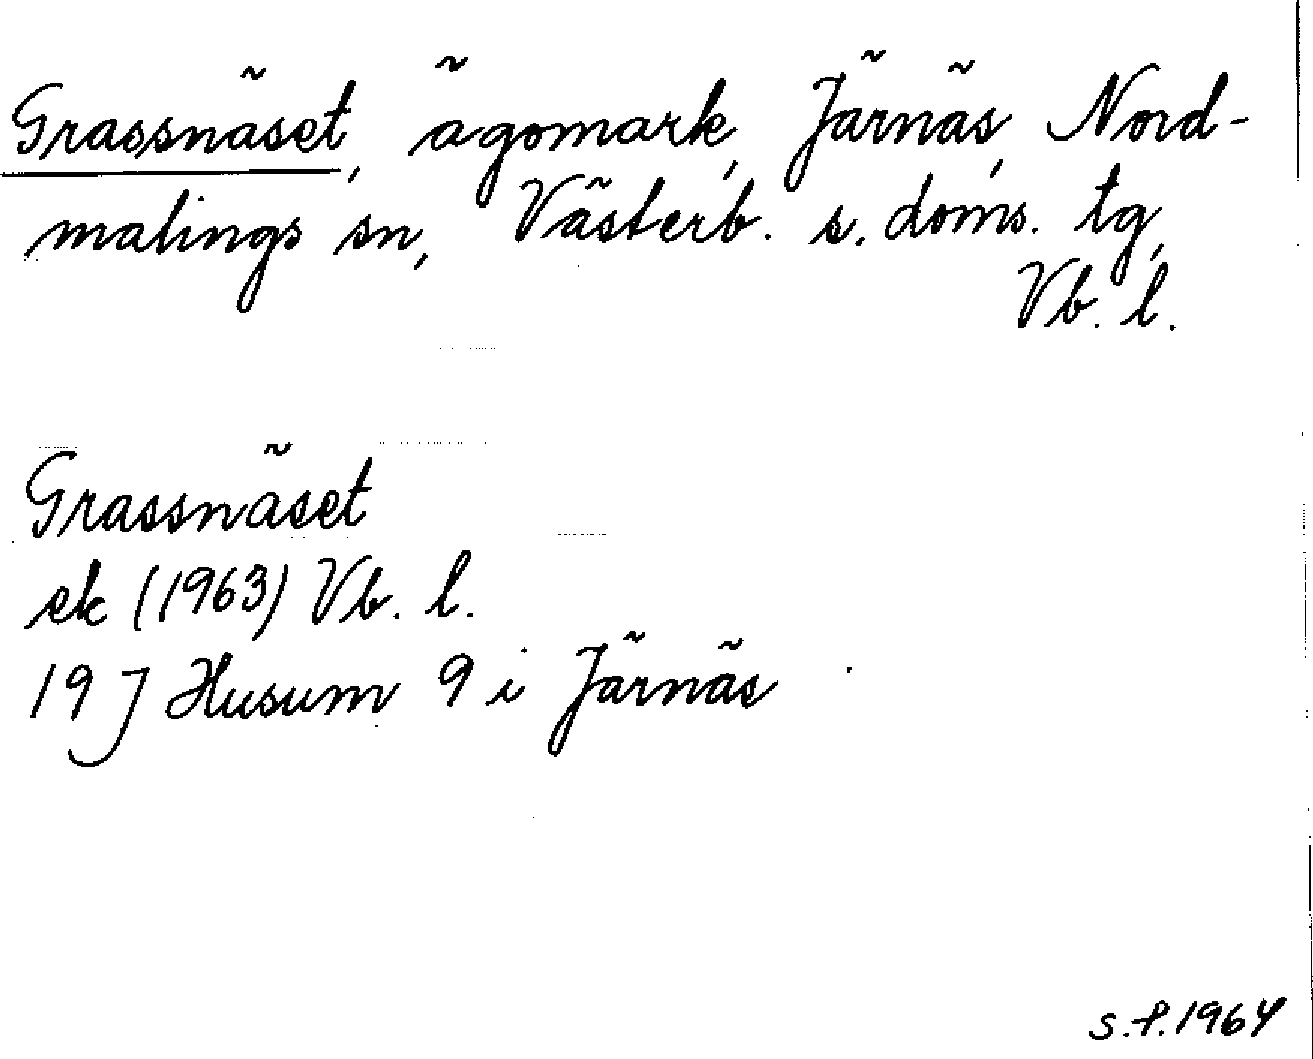 Grassnäset, ägomark, Järnäs, Nord-
malings sn, Västerb. s. doms. tg,
Vb. l.
Grassnäset
ek (1963) Vb. l.
19 J Husum 9 i Järnäs
S.P. 1964